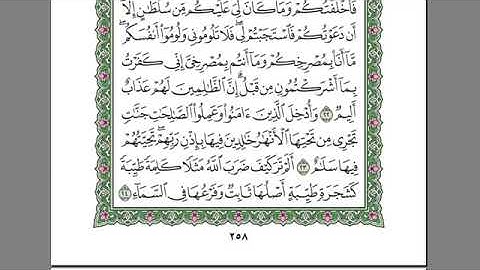 فَأَخۡلَفۡتُكُمۡۖ وَمَا كَانَ لِيَ عَلَيۡكُم مِّن سُلۡطَٰنٍ إِلَّآ
أَن دَعَوۡتُكُمۡ فَٱسۡتَجَبۡتُمۡ لِيۖ فَلَا تَلُومُونِي وَلُومُوٓاْ أَنفُسَكُمۖ
مَّآ أَنَا۠ بِمُصۡرِخِكُمۡ وَمَآ أَنتُم بِمُصۡرِخِيَّ إِنِّي كَفَرۡتُ
بِمَآ أَشۡرَكۡتُمُونِ مِن قَبۡلُۗ إِنَّ ٱلظَّٰلِمِينَ لَهُمۡ عَذَابٌ
أَلِيمٞ ٢٢ وَأُدۡخِلَ ٱلَّذِينَ ءَامَنُواْ وَعَمِلُواْ ٱلصَّٰلِحَٰتِ جَنَّٰتٖ
تَجۡرِي مِن تَحۡتِهَا ٱلۡأَنۡهَٰرُ خَٰلِدِينَ فِيهَا بِإِذۡنِ رَبِّهِمۡۖ تَحِيَّتُهُمۡ
فِيهَا سَلَٰمٌ ٢٣ أَلَمۡ تَرَ كَيۡفَ ضَرَبَ ٱللَّهُ مَثَلٗا كَلِمَةٗ طَيِّبَةٗ
كَشَجَرَةٖ طَيِّبَةٍ أَصۡلُهَا ثَابِتٞ وَفَرۡعُهَا فِي ٱلسَّمَآءِ ٢٤
٢٥٨